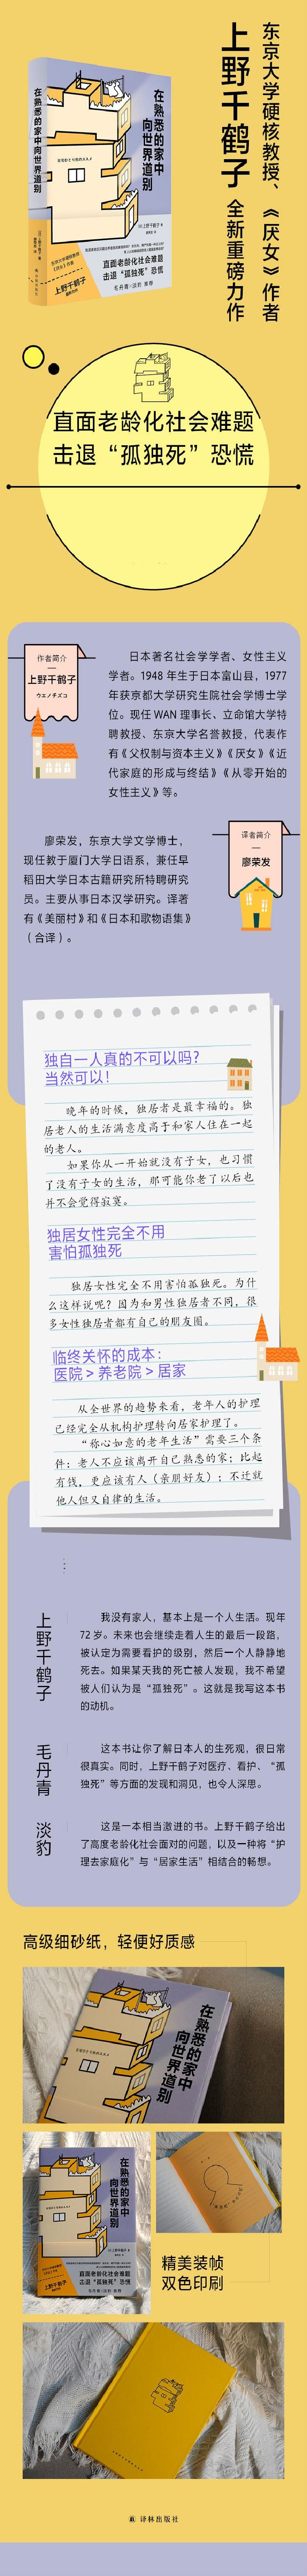 东京大学硬核教授、《厌女》作者
上野千鹤子 全新重磅力作
在熟悉的家中
向世界道别
在熟悉的家中向世界道别
直面老龄化社会难题
击退“孤独死”恐慌
毛丹青 淡豹 推荐
上野千鹤子
直面老龄化社会难题
击退“孤独死”恐慌
作者简介
上野千鹤子
ウエノチズコ
日本著名社会学学者、女性主义
学者。1948 年生于日本富山县，1977
年获京都大学研究生院社会学博士学
位。现任 WAN 理事长、立命馆大学特
聘教授、东京大学名誉教授，代表作
有《父权制与资本主义》《厌女》《近
代家庭的形成与终结》《从零开始的
女性主义》等。
译者简介
廖荣发
廖荣发，东京大学文学博士，
现任教于厦门大学日语系，兼任早
稻田大学日本古籍研究所特聘研究
员。主要从事日本汉学研究。译著
有《美丽村》和《日本和歌物语集》
（合译）。
独自一人真的不可以吗？
当然可以！
晚年的时候，独居者是最幸福的。独
居老人的生活满意度高于和家人住在一起
的老人。
如果你从一开始就没有子女，也习惯
了没有子女的生活，那可能你老了以后也
并不会觉得寂寞。
独居女性完全不用
害怕孤独死
独居女性完全不用害怕孤独死。为什
么这样说呢？因为和男性独居者不同，很
多女性独居者都有自己的朋友圈。
临终关怀的成本：
医院 > 养老院 > 居家
从全世界的趋势来看，老年人的护理
已经完全从机构护理转向居家护理了。
“称心如意的老年生活”需要三个条
件：老人不应该离开自己熟悉的家；比起
有钱，更应该有人（亲朋好友）；不迁就
他人但又自律的生活。
上野千鹤子
我没有家人，基本上是一个人生活。现年
72 岁。未来也会继续走着人生的最后一段路，
被认定为需要看护的级别，然后一个人静静地
死去。如果某天我的死亡被人发现，我不希望
被人们认为是“孤独死”。这就是我写这本书
的动机。
毛丹青
这本书让你了解日本人的生死观，很日常
很真实。同时，上野千鹤子对医疗、看护、“孤
独死”等方面的发现和洞见，也令人深思。
淡豹
这是一本相当激进的书。上野千鹤子给出
了高度老龄化社会面对的问题，以及一种将“护
理去家庭化”与“居家生活”相结合的畅想。
高级细砂纸，轻便好质感
在熟悉的家中
向世界道别
在熟悉的家中
向世界道别
直面老龄化社会难题
击退“孤独死”恐慌
精美装帧
双色印刷
译林出版社